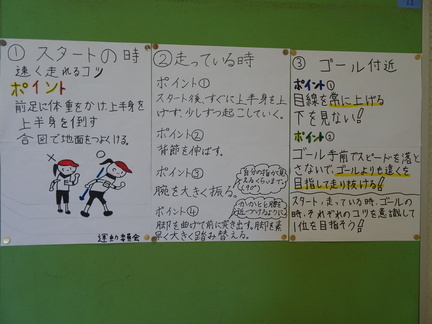 ① スタートの時
速く走れるコツ
ポイント
前足に体重をかけ、上半身を
上半身を倒す
合図で地面をつよくける。
×
○
運動委員会
② 走っている時
ポイント①
スタート後、すぐに上半身を上
げず、少しずつ起こしていく。
ポイント②
背筋を伸ばす。
ポイント③
腕を大きく振る。
自分の指が見
えるくらいまで
(90°)
ポイント④
かかとと腰を
近づけるように
脚を曲げて前に突き出す。脚を素
早く大きく踏み替える。
③ ゴール付近
ポイント①
目線を常に上げる
下を見ない!
ポイント②
ゴール手前でスピードを落と
さないで、ゴールよりも遠くを
目指して走り抜ける!
スタート、走っている時、ゴールの
時、それぞれのコツを意識して
1位を目指そう!
11